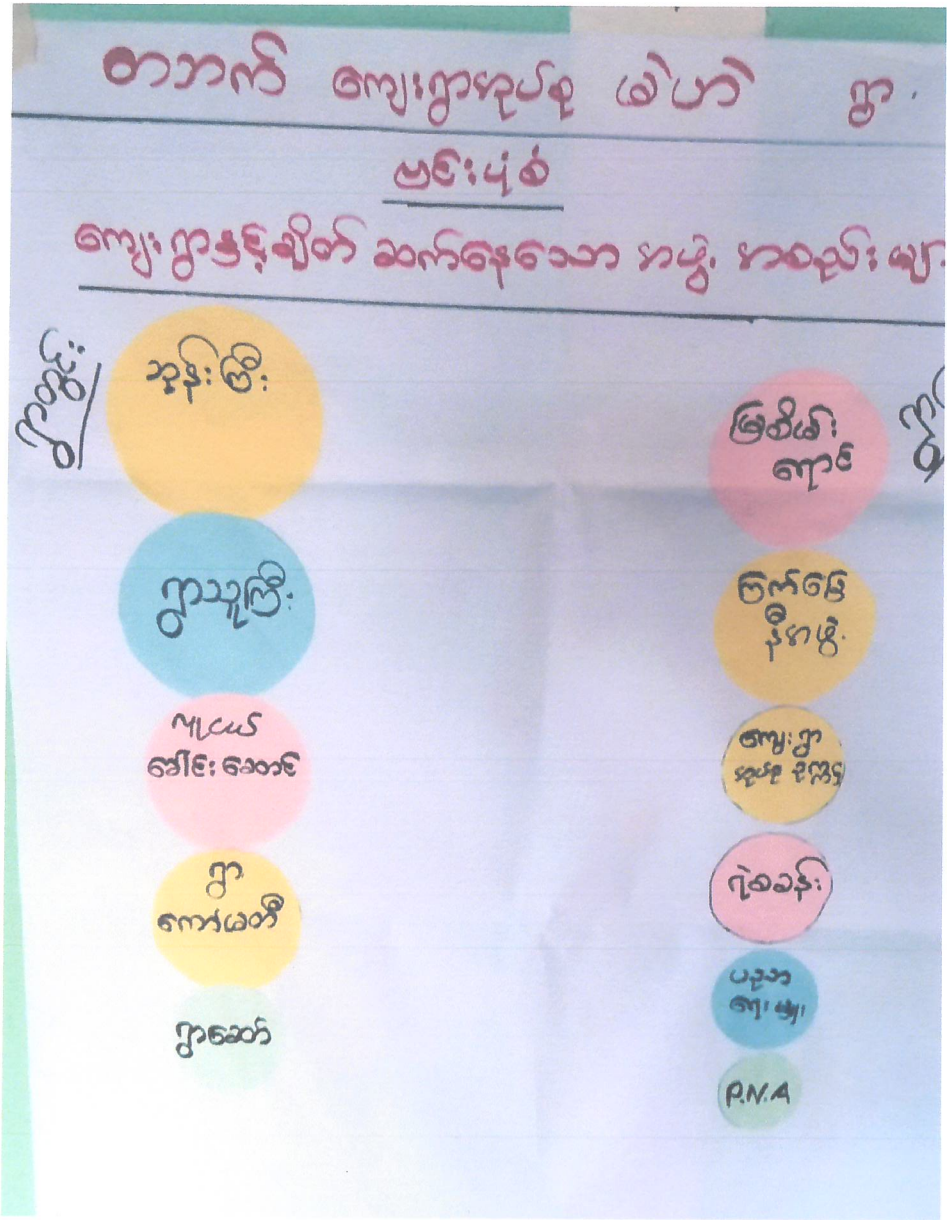 တဘက် ကျေးရွာအုပ်စု ဖဲဟဲ ရွာ
ဗင်းပုံစံ
ကျေးရွာနှင့်ချိတ် ဆက်နေသော အဖွဲ့ အစည်း များ
ရွာတွင်း
ဘုန်းကြီး
ရွာသူကြီး
လူငယ်
ခေါင်းဆောင်
ရွာ
ကော်မတီ
ရွာဆော်
မြစိမ်း
ရောင်
ကြက်ခြေ
နီအဖွဲ့
ကျေးရွာ
အုပ်စု ဥက္ကဌ
ရဲစခန်း
ပညာ
ရေးမှူး
P.N.A